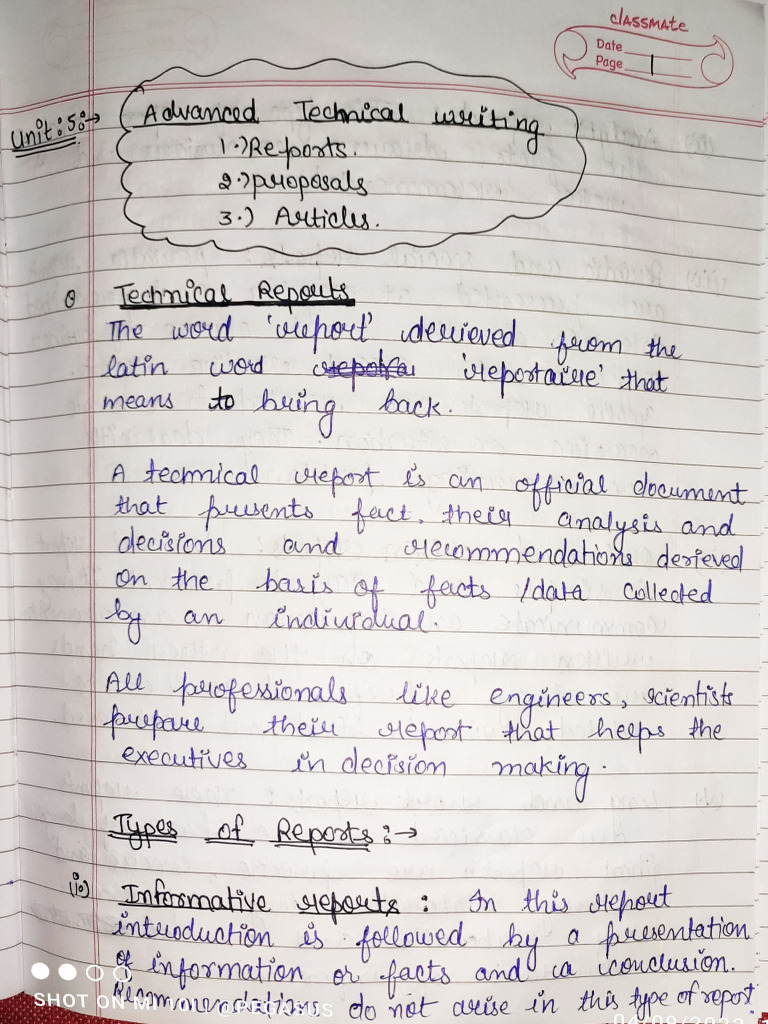 classmate
Date
Page 1
Unit:5:→
Advanced Technical writing
1.) Reports.
2.) proposals
3.) Articles.
Technical Reports
The word 'report' derieved from the
latin word 'reportaire' that
means to bring back.
A technical report is an official document
that presents fact, their analysis and
decisions and recommendations derieved
on the basis of facts /data collected
by an individual.
All professionals like engineers, scientists
prepare their report that helps the
executives in decision making.
Types of Reports:→
(i) Informative reports: In this report
introduction is followed by a presentation
of information or facts and a conclusion.
Recommendations do not arise in this type of report
SHOT ON MI
04/09/2022